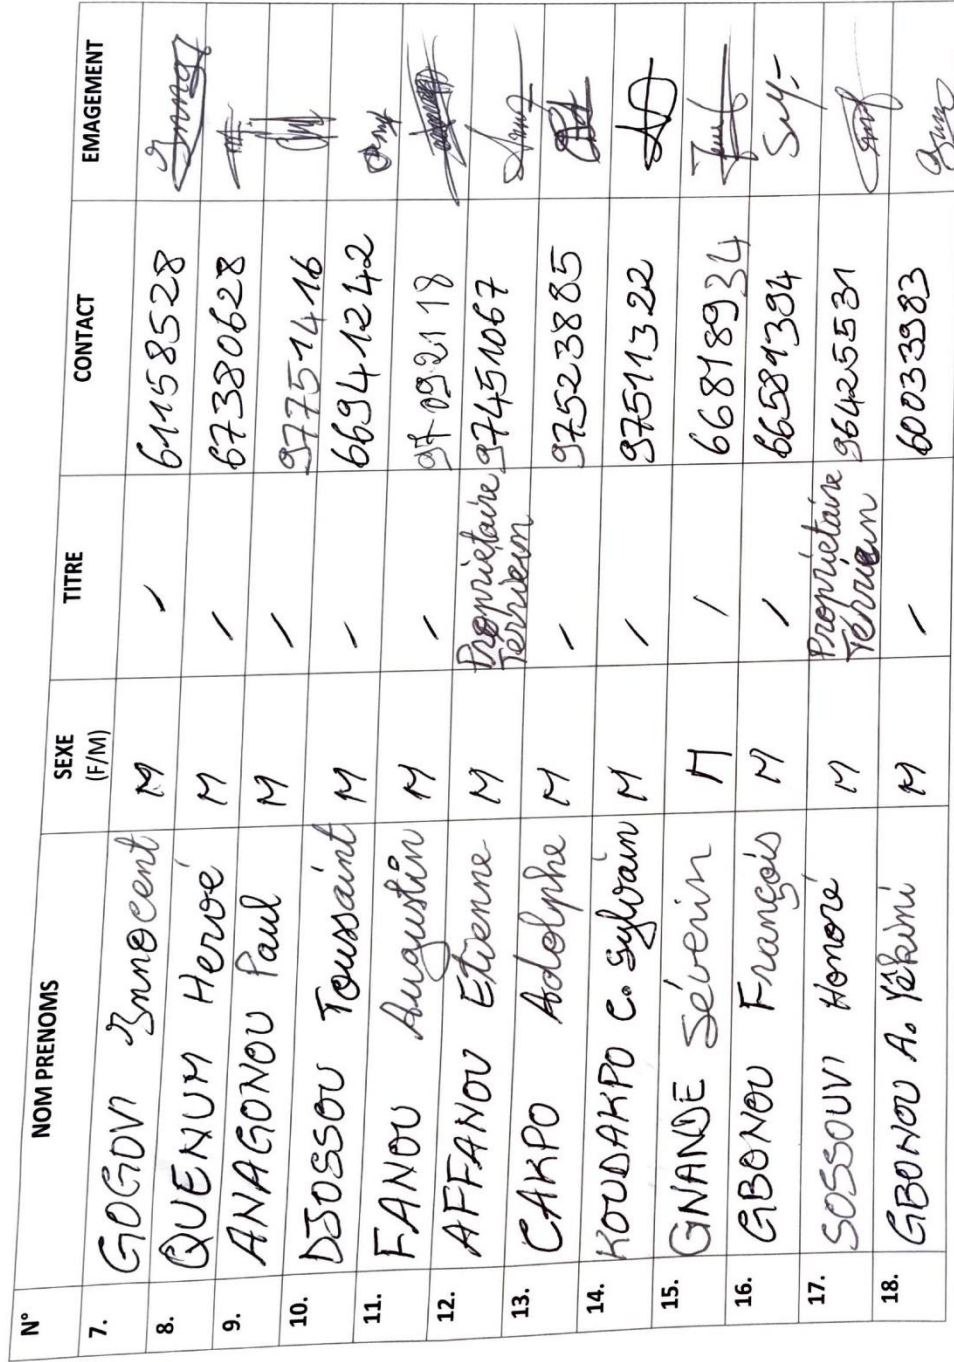 N° NOM PRENOMS SEXE (F/M) TITRE CONTACT EMAGEMENT
7. GOGOVI Innocent M / 61158528
8. QUENUM Hervé M / 67380628
9. ANAGONOU Paul M / 97751416
10. DJOSSOU Toussaint M / 66941242
11. FANOU Augustin M / 97092118
12. AFFANOU Etienne M Propriétaire Terrien 97451067
13. CAKPO Adolphe M / 97523885
14. KOUDAKPO C. Sylvain M / 97511322
15. GNANDE Séverin M / 66818934
16. GBONOU François M / 66581394
17. SOSSOUVI Honoré M Propriétaire Terrien 96425531
18. GBONOU A. Yêkini M / 60033983